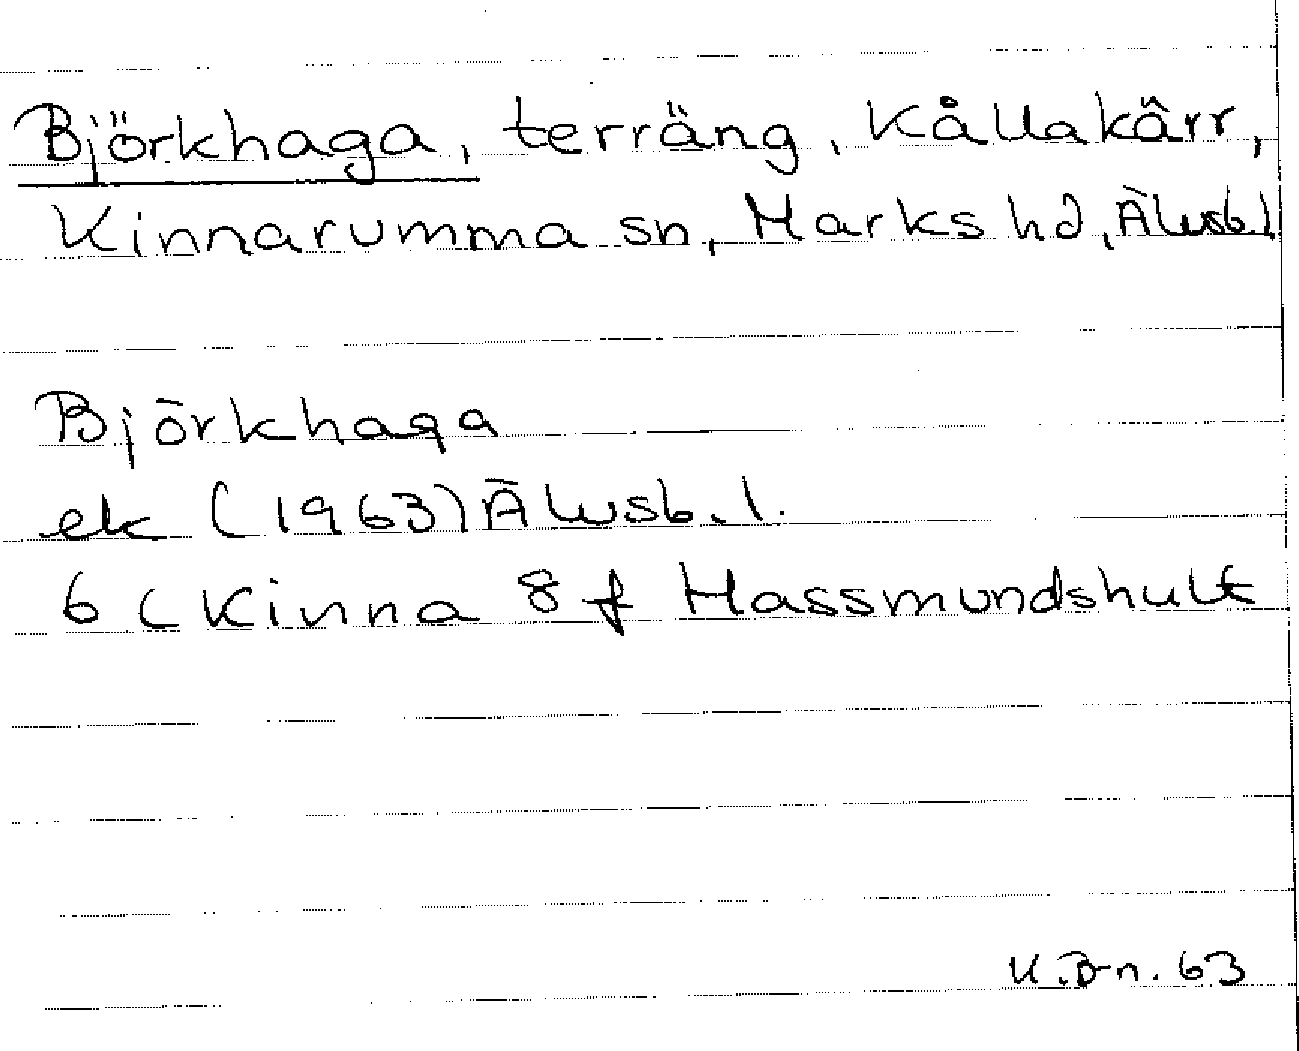 Björkhaga, terräng, Kållakärr,
Kinnarumma sn, Marks hd, Älvsb.l
Björkhaga
ek (1963) Älvsb.l.
6 C Kinna 8 f Hassmundshult
K.B-n. 63